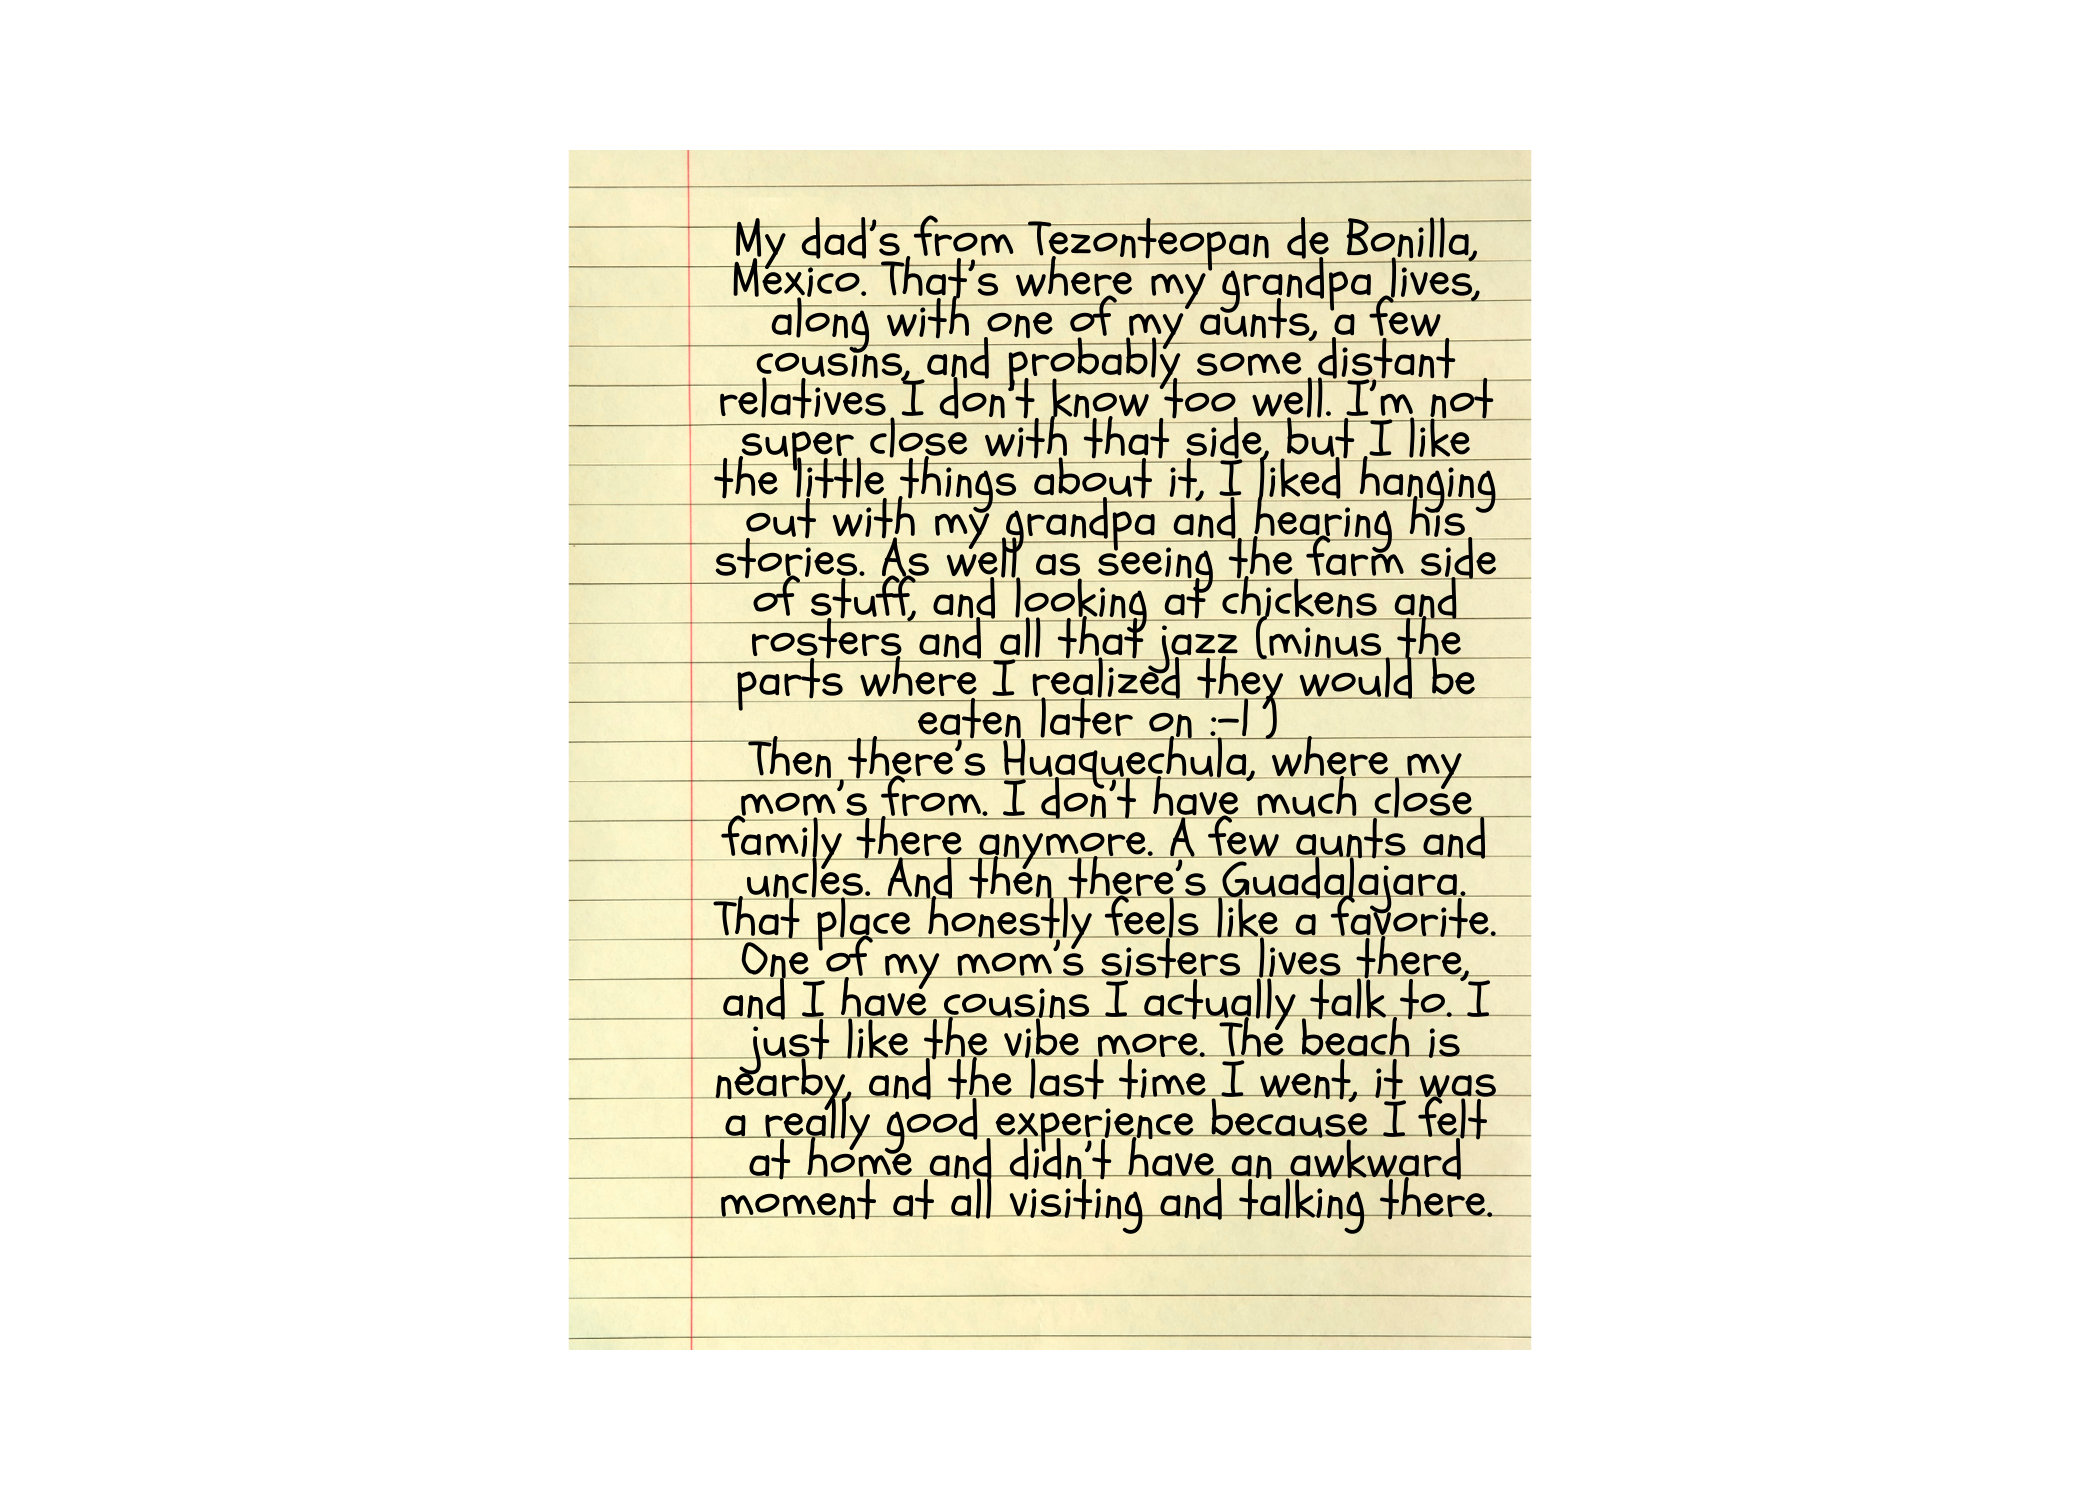 My dad's from Tezonteopan de Bonilla,
Mexico. That's where my grandpa lives,
along with one of my aunts, a few
cousins, and probably some distant
relatives I don't know too well. I'm not
super close with that side, but I like
the little things about it, I liked hanging
out with my grandpa and hearing his
stories. As well as seeing the farm side
of stuff, and looking at chickens and
rosters and all that jazz (minus the
parts where I realized they would be
eaten later on :-| )
Then there's Huaquechula, where my
mom's from. I don't have much close
family there anymore. A few aunts and
uncles. And then there's Guadalajara.
That place honestly feels like a favorite.
One of my mom's sisters lives there,
and I have cousins I actually talk to. I
just like the vibe more. The beach is
nearby, and the last time I went, it was
a really good experience because I felt
at home and didn't have an awkward
moment at all visiting and talking there.